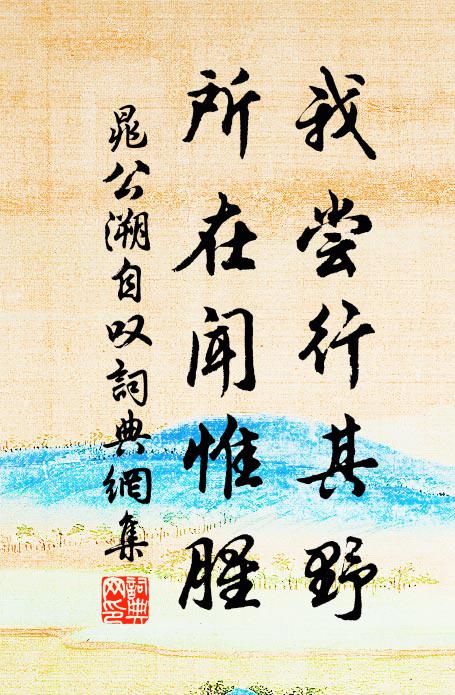 我尝行其野
所在闻惟腥
晁公溯自叹詞典網集
詞典